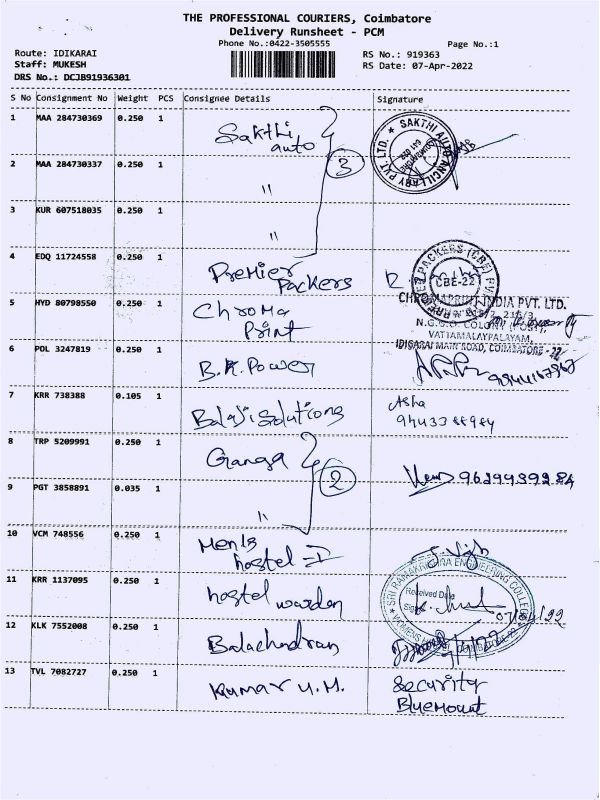 THE PROFESSIONAL COURIERS, Coimbatore
Delivery Runsheet - PCM
Phone No.:0422-3505555
Page No.:1
Route: IDIKARAI
Staff: MUKESH
DRS No.: DCJB91936301
RS No.: 919363
RS Date: 07-Apr-2022
S No Consignment No Weight PCS Consignee Details Signature
1 MAA 284730369 0.250 1 Sakthi auto
SAKTHI AUTO ANCILLARY PVT. LTD.
3
2 MAA 284730337 0.250 1 "
3 KUR 607518035 0.250 1 "
4 EDQ 11724558 0.250 1 Premier Packers
PACKERS (CBE)
CBE-22
5 HYD 80798550 0.250 1 Chroma Print
CHROMAPRINT INDIA PVT. LTD.
N.G.G.O. COLONY (POST),
VATTAMALAYPALAYAM,
IDIGARAI MAIN ROAD, COIMBATORE -22
6 POL 3247819 0.250 1 B.K. Power
7 KRR 738388 0.105 1 Balaji solutions
Asha
8 TRP 5209991 0.250 1 Ganga
2
9 PGT 3858891 0.035 1 "
10 VCM 748556 0.250 1 Men's hostel - I
11 KRR 1137095 0.250 1 hostel warden
SRI RAMAKRISHNA ENGINEERING COLLEGE
Received Date
07/04/22
12 KLK 7552008 0.250 1 Balachandran
13 TVL 7082727 0.250 1 Kumar U.M.
Security
Bluemount